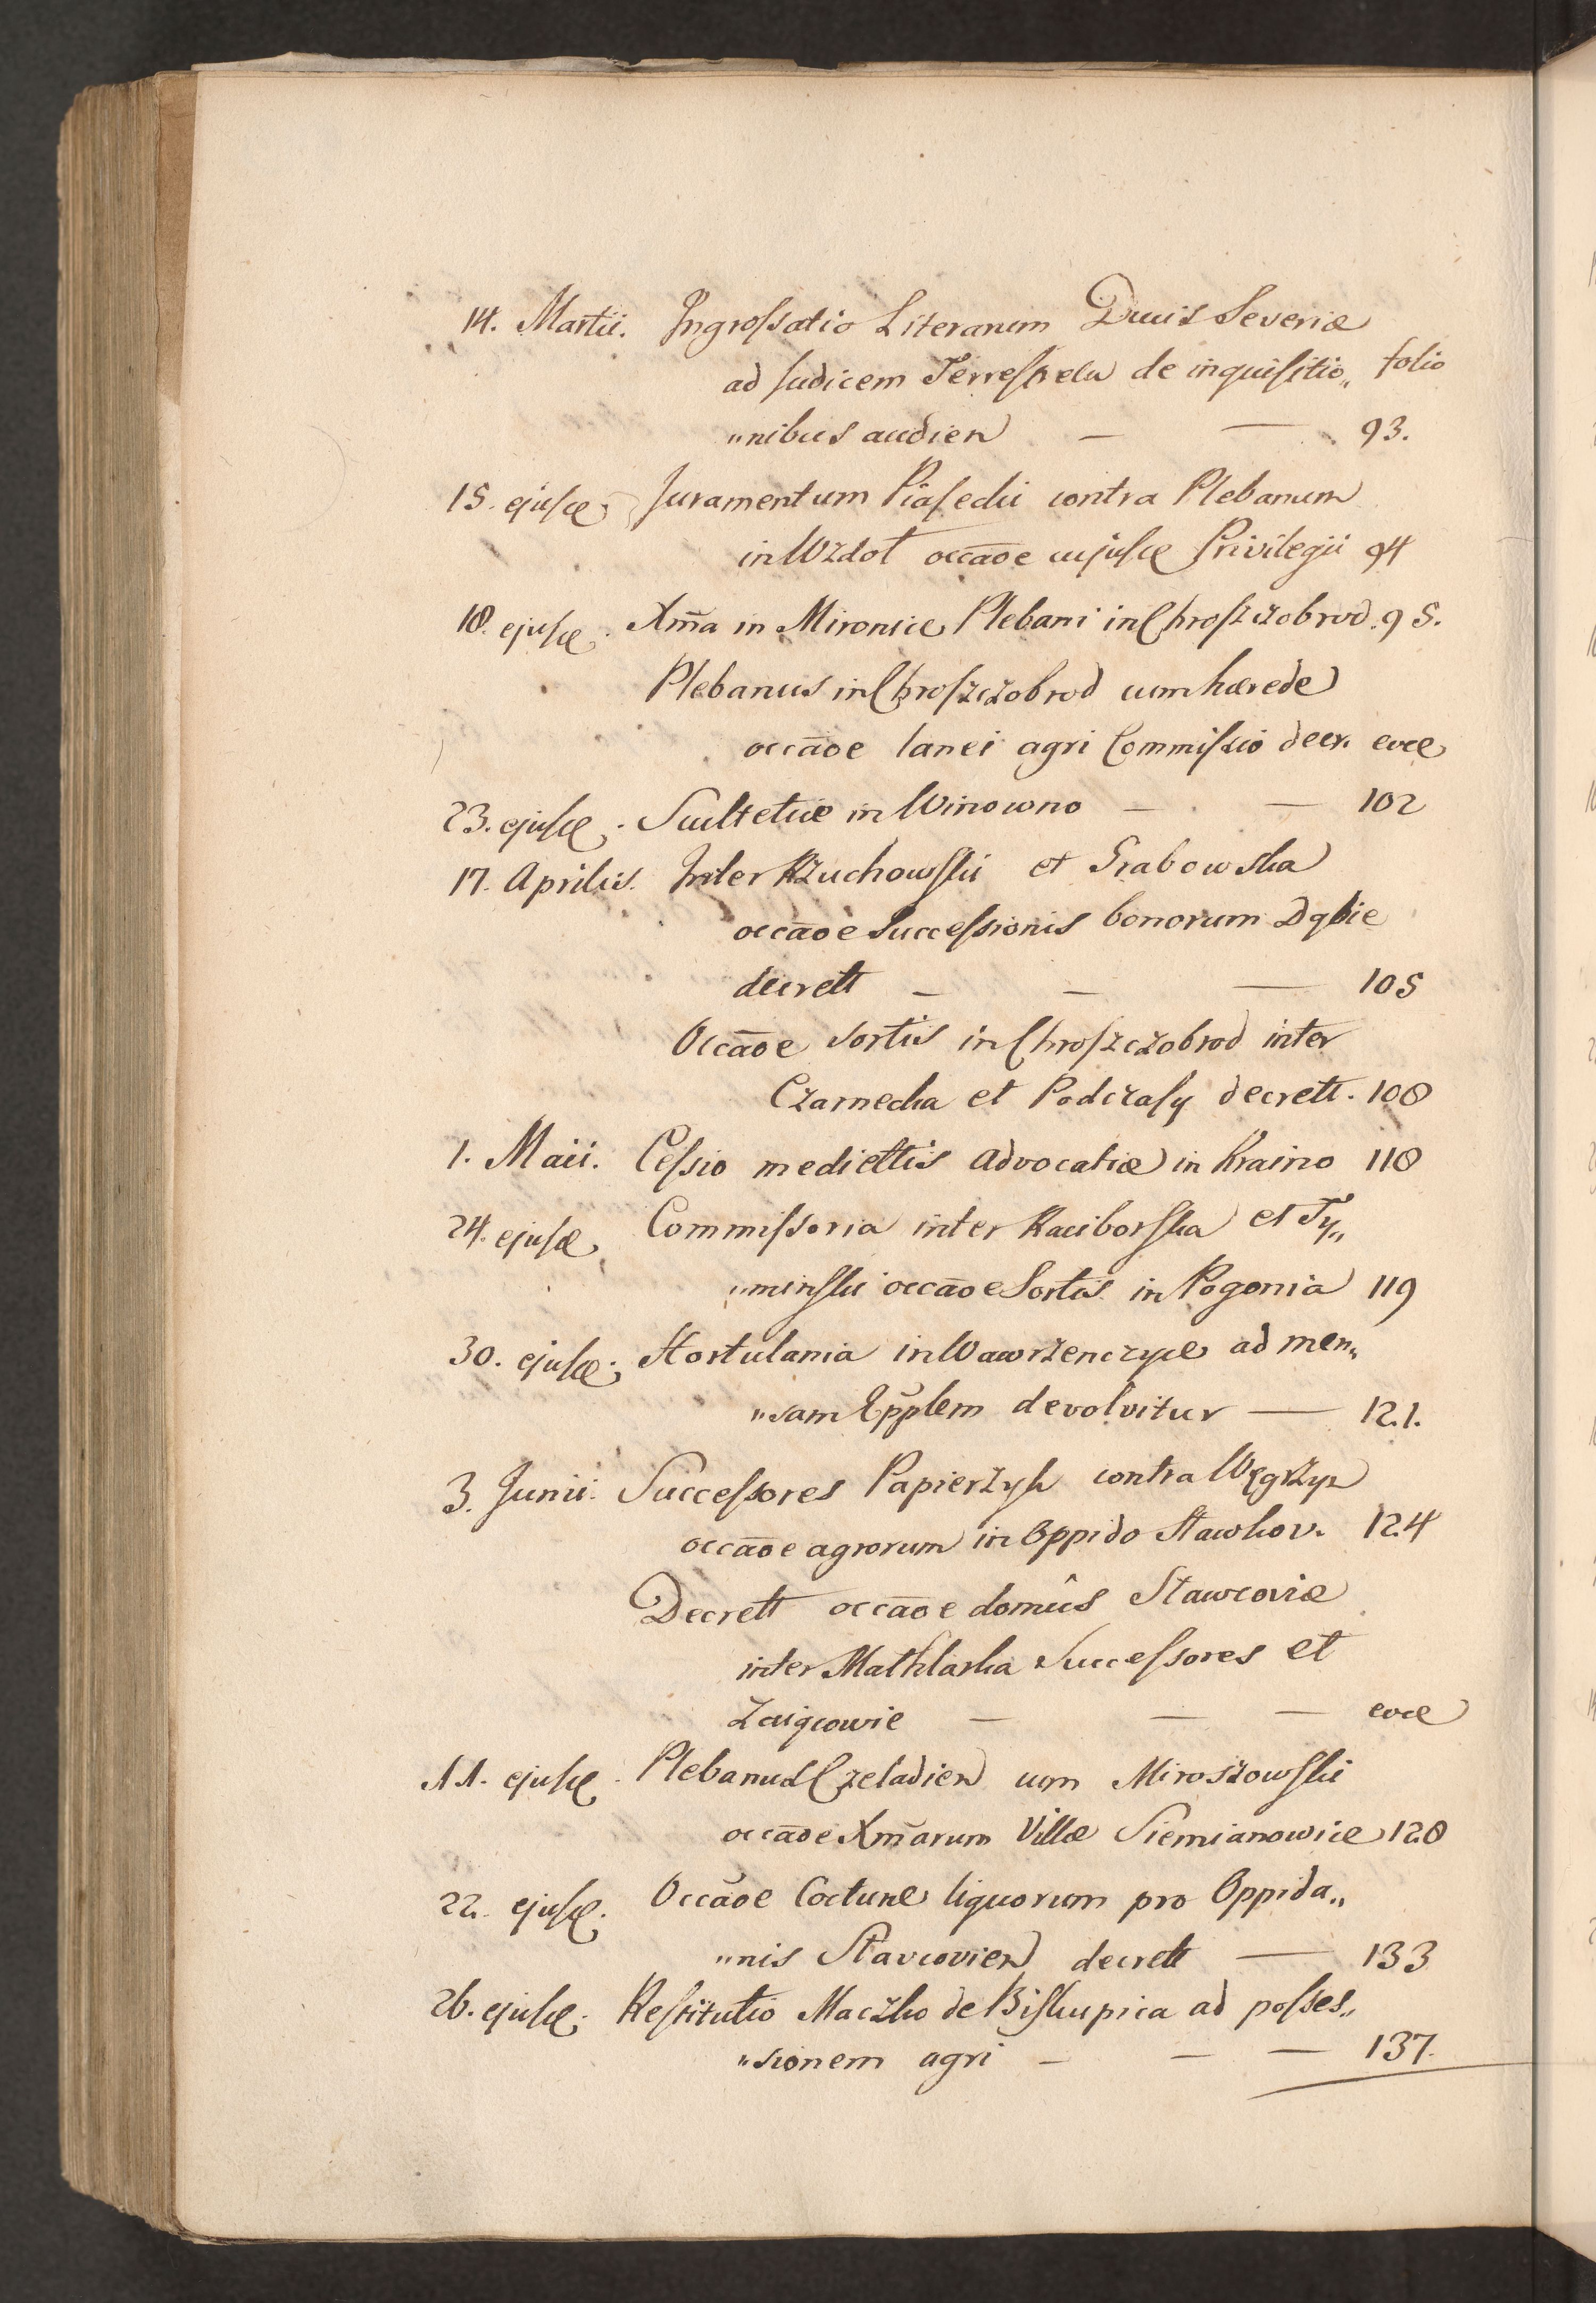 14. Martii. Ingrossatio Literarum Ducis Severiæ
ad Judicem Terrestrem de inquisitio„ folio
„nibus audien — — 93.
15. ejusd. Juramentum Piasecki contra Plebanum
in Wzdoł occãoe cujusd Privilegii 94
18. ejusd. Xma in Mironice Plebani in Chroszczobrod. 95.
Plebanus in Chroszczobrod cum hærede
occãoe lanei agri Commissio decr. eod
23. ejusd. Scultetiæ in Winowno — — 102
17. Aprilis. Inter Rzuchowski et Grabowska
occãoe Successionis bonorum Dąbie
decrett — — — 105
Occãoe sortis in Chroszczobrod inter
Czarnecka et Podczasy decrett. 108
1. Maii. Cessio medietttis Advocatiæ in Kraino 118
24. ejusd. Commissoria inter Raciborska et Ty„
„minski occãoe Sortis in Pogonia 119
30. ejusd. Hortulania in Wawrzenczyce ad men„
„sam Epplem devolvitur — 121.
3. Junii. Successores Papierzysk contra Węgrzyn
occãoe agrorum in Oppido Stawkov. 124
Decrett occãoe domûs Stawcoviæ
inter Mathlaska Successores et
Zaiącowie — — — eod
11. ejusd. Plebanus Czeladien cum Miroszowski
occãoe Xmarum Villæ Siemianowice 128
22. ejusd. Occãoe Cocturæ liquorum pro Oppida„
„nis Stavcovien decrett — 133
26. ejusd. Restitutio Maczko de Biskupica ad posses„
„sionem agri — — — 137.